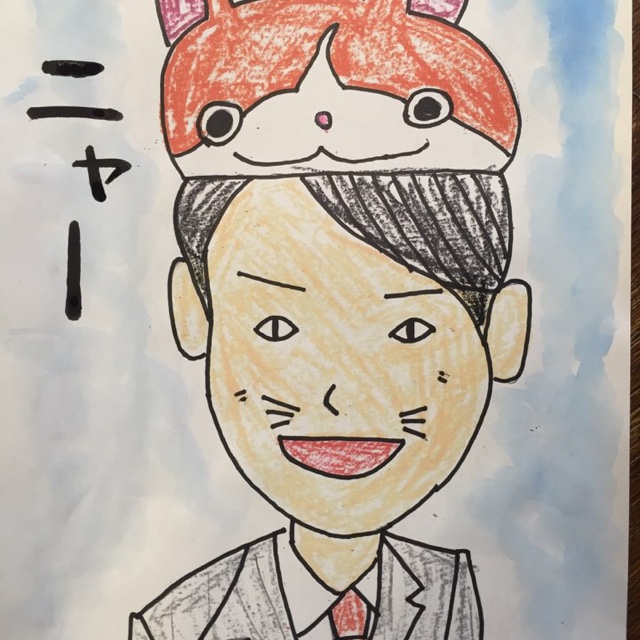 ニャー